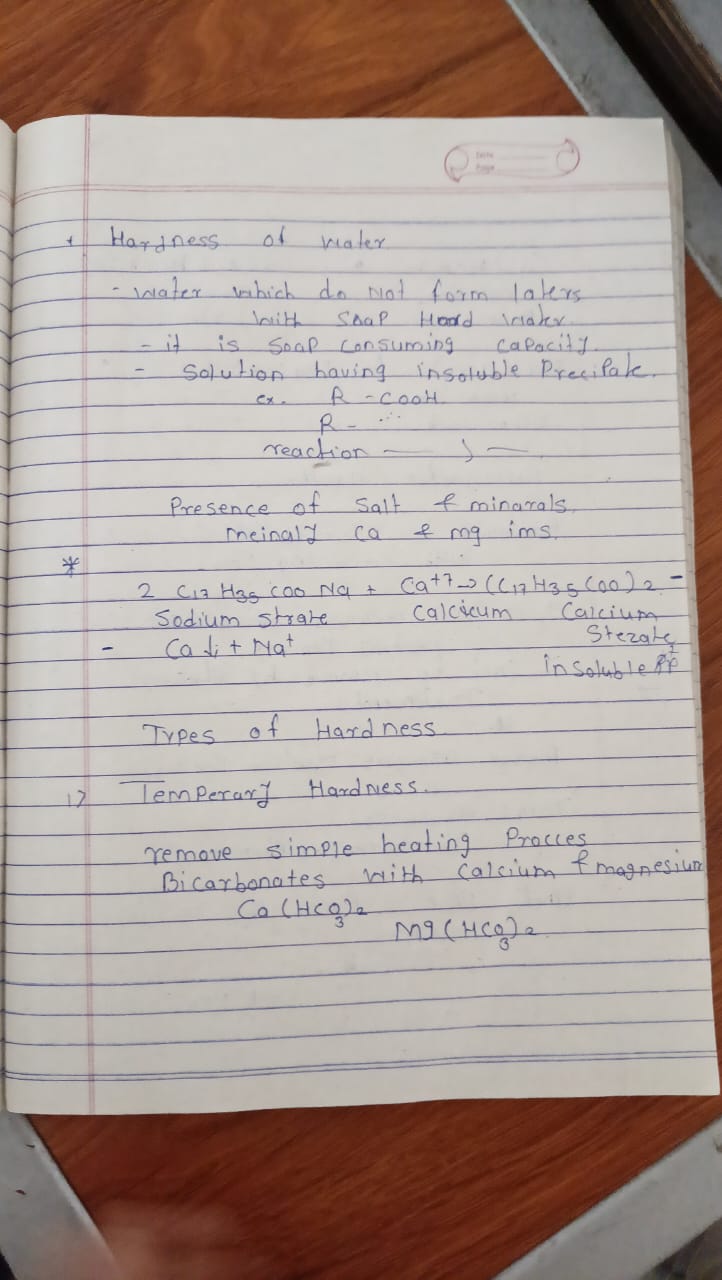 Date
Page
Hardness of water
- water which do not form laters
with soap Hoard water.
- it is soap consuming capacity.
- solution having insoluble Precipate.
ex. R - COOH.
R -
reaction
Presence of salt & minarals.
meinaly ca & mg ims.
*
2 C17 H35 COO Na + Ca++ → (C17H35COO)2 -
Sodium strate calcicum Calcium
Stezate
- Ca ↓ + Na+
insoluble
Types of Hardness
1) Temperary Hardness.
remove simple heating Procces
Bicarbonates with calcium & magnesium
Ca (HCO3)2
Mg (HCO3)2